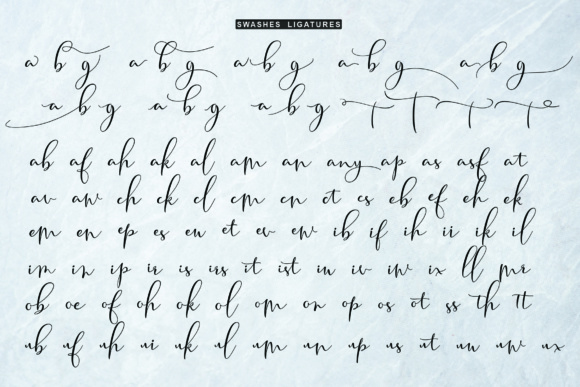 SWASHES LIGATURES
a b g a b g a b g a b g a b g
a b g a b g a b g T T T T
ab af ah ak al am an any ap as asf at
av aw ch ck cl cm cn ct cs eb ef eh ek
em en ep es eu et ev ew ib if ih ii ik il
im in ip ir is irs it ist iu iv iw ix ll mr
ob oe of oh ok ol om on op os ot ss th tt
ub uf uh ui uk ul um un up us ut uu uw ux